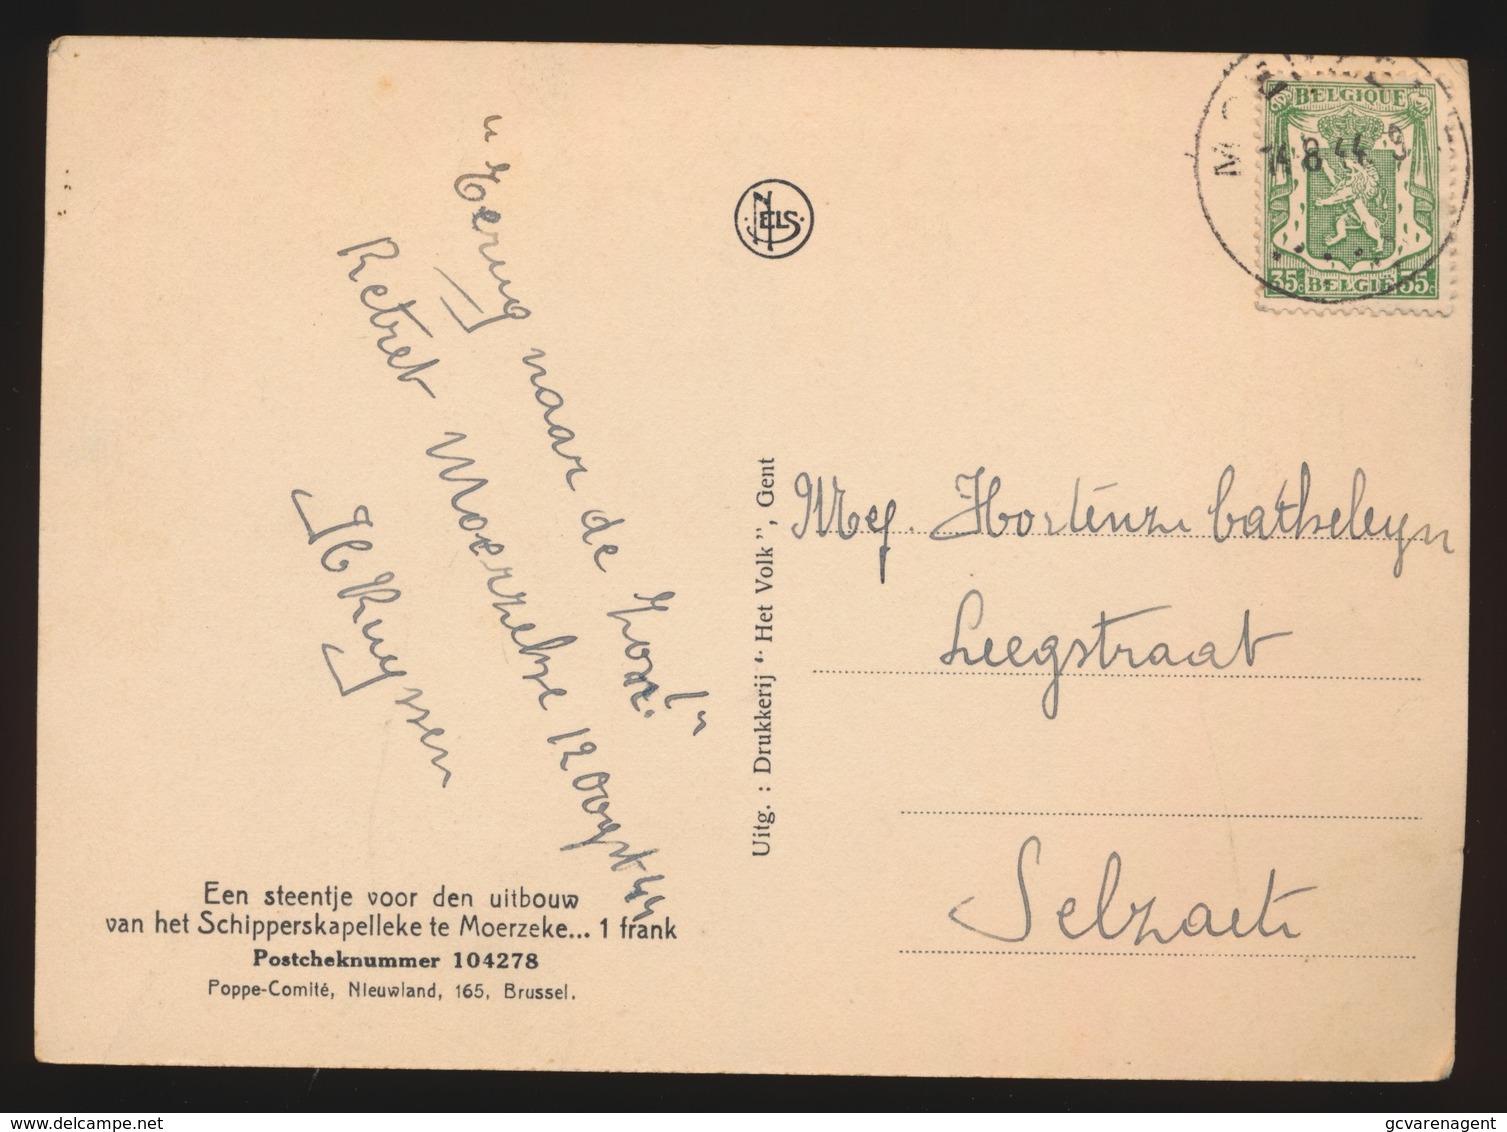 "Terug naar de Zon!"
Retret Moerzeke 12 Oogst 44
Ruyssen
Een steentje voor den uitbouw
van het Schipperskapelleke te Moerzeke... 1 frank
Postcheknummer 104278
Poppe-Comité, Nieuwland, 165, Brussel.
Uitg. : Drukkerij "Het Volk", Gent
NELS
BELGIQUE
14.8.44. 9
35c BELGIË 35c
Mej. Hortense Catheleyn
Leegstraat
Selzaete
gcvarenagent